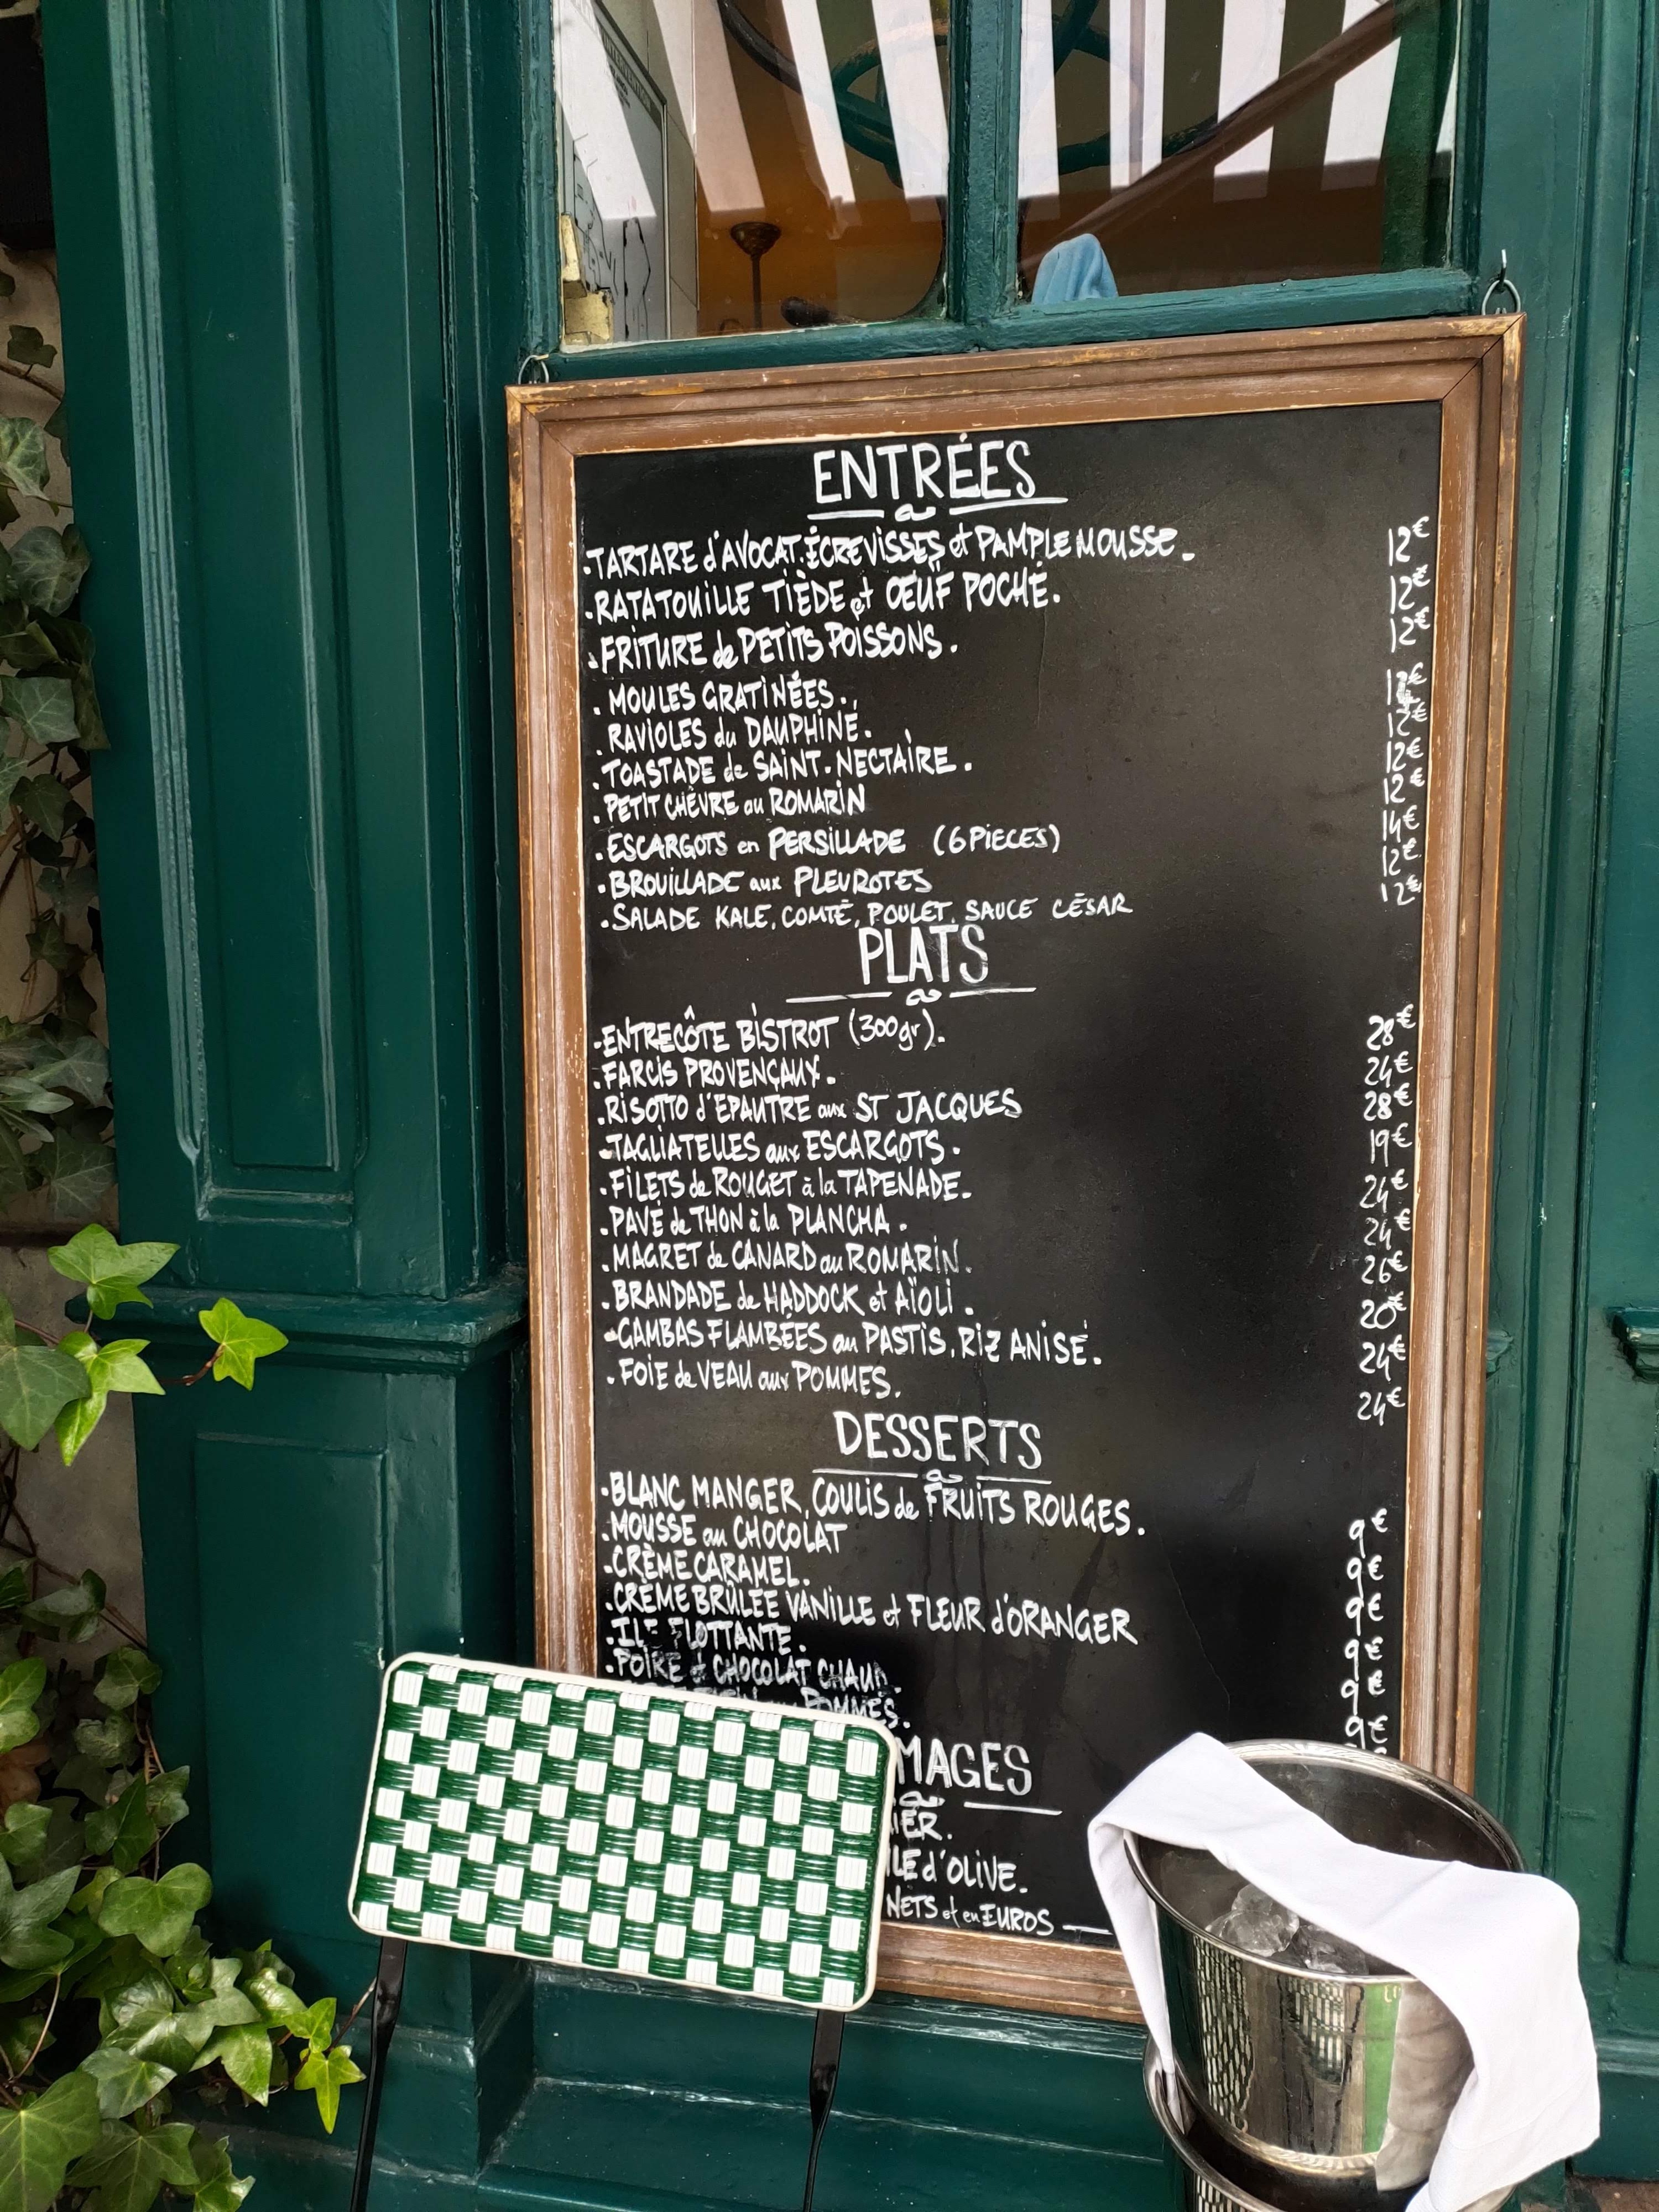 ENTRÉES
.TARTARE d'AVOCAT.ÉCREVISSES et PAMPLEMOUSSE. 12€
.RATATOUILLE TIÈDE et ŒUF POCHÉ. 12€
.FRITURE de PETITS POISSONS. 12€
.MOULES GRATINÉES. 12€
.RAVIOLES du DAUPHINÉ. 12€
.TOASTADE de SAINT.NECTAIRE. 12€
.PETIT CHÈVRE au ROMARIN 12€
.ESCARGOTS en PERSILLADE (6 PIECES) 14€
.BROUILLADE aux PLEUROTES 12€
.SALADE KALE, COMTÉ, POULET, SAUCE CÉSAR 12€
PLATS
.ENTRECÔTE BISTROT (300gr). 28€
.FARCIS PROVENÇAUX. 24€
.RISOTTO d'EPAUTRE aux ST JACQUES 28€
.TAGLIATELLES aux ESCARGOTS. 19€
.FILETS de ROUGET à la TAPENADE. 24€
.PAVÉ de THON à la PLANCHA. 24€
.MAGRET de CANARD au ROMARIN. 26€
.BRANDADE de HADDOCK et AÏOLI. 20€
.GAMBAS FLAMBÉES au PASTIS, RIZ ANISÉ. 24€
.FOIE de VEAU aux POMMES. 24€
DESSERTS
.BLANC MANGER, COULIS de FRUITS ROUGES. 9€
.MOUSSE au CHOCOLAT 9€
.CRÈME CARAMEL. 9€
.CRÈME BRÛLÉE VANILLE et FLEUR d'ORANGER 9€
.ILE FLOTTANTE. 9€
.POIRE et CHOCOLAT CHAUD. 9€
POMMES.
MAGES
IER.
ILE d'OLIVE.
NETS et en EUROS